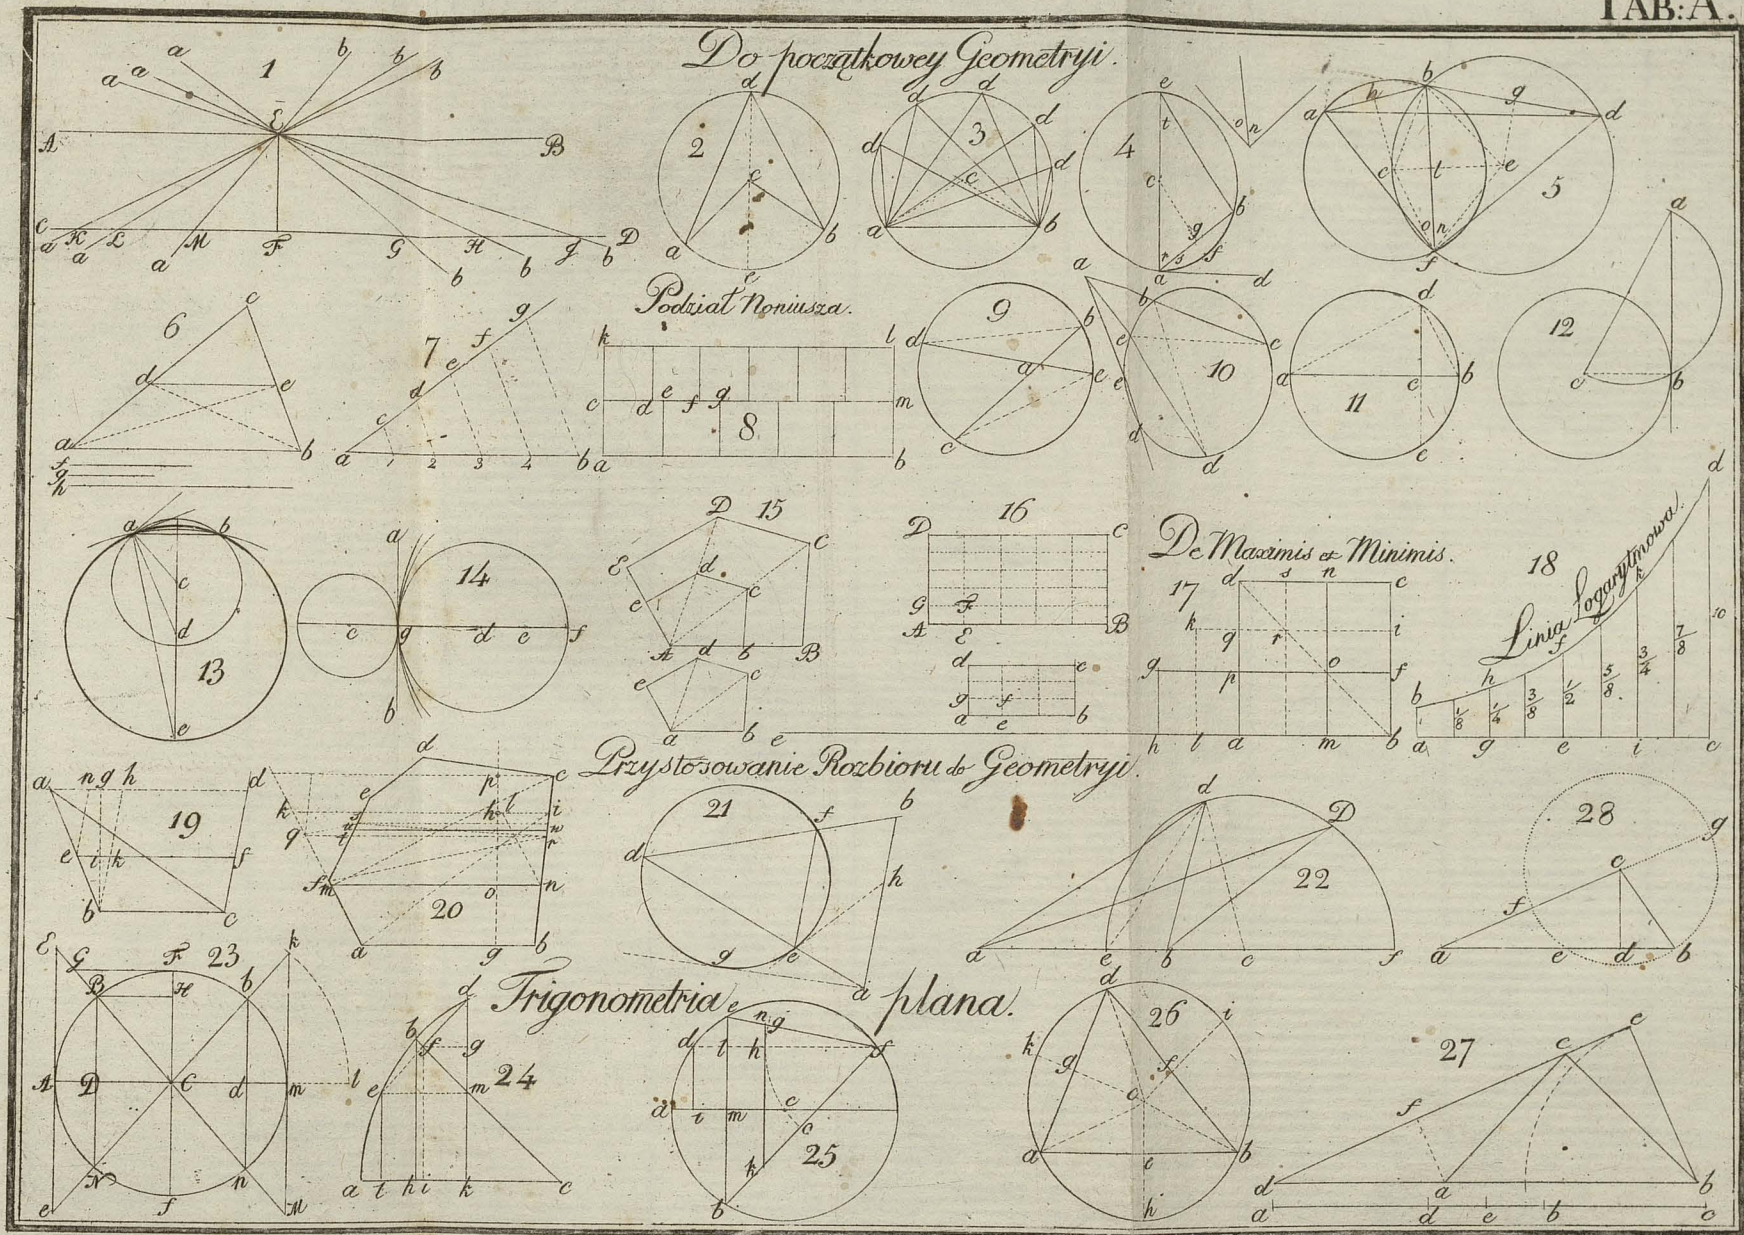 TAB: A.
Do początkowey Geometryi.
1
a a a b b b
E
A B
C D
a K L M F G H g b
a a b b
2
d
c
a b
e
3
d d d d d
c
a b
4
e
t
c
b
g
r s f
a d
o n
5
h b g
a d
c t e
o n
f
6
c
d e
a b
f
g
h
7
g
f
e
d
c
a 1 2 3 4 b
Podział Noniusza.
k l
c d e f g m
8
a b
9
d b
a e
c
10
a
b
e c
e
d
d
11
d
a c b
c
12
a
c b
13
a b
c
d
e
14
a
c g d e f
b
15
D
E C
d
e c
A b B
d
e c
a b
16
D C
G F
A E B
d c
g f
a e b
De Maximis et Minimis.
17
d s n c
k q r i
g p o f
e h l a m b
18
Linia Logarytmowa.
d
k
f
h
b
1 1/8 1/4 3/8 1/2 5/8 3/4 7/8 10
a g e i c
Przystosowanie Rozbioru do Geometryi.
19
a n g h d
e i k f
b c
20
d
e p c
k h l i
q t r
f m o n
a g b
21
f b
d
h
g e
a
22
d
D
a e b c f
28
g
c
f
a e d b
Trigonometria plana.
23
E G F k
B H b
A D C d m l
N n
e f M
24
d
b f g
e m
a t h i k c
25
e n g
d t h f
a i m e
c
k
b
26
d
i
k g f
o
a e b
h
27
e
c
f
d a b
a d e b c